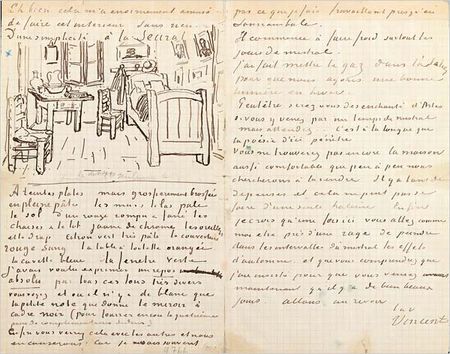 Eh bien cela m'a enormement amusé
de faire cet interieur sans rien.
D'une simplicité à la Seurat.
A teintes plates mais grossierement brossées
en pleine pâte les murs lilas pâle
le sol d'un rouge rompu & fané les
chaises & le lit jaune de chrome les oreillers
et le drap citron vert très pâle la couverture
rouge sang la table à toilette orangée
la cuvette bleue la fenêtre verte
J'avais voulu exprimer un repos
absolu par tous ces tons très divers
vous voyez et où il n'y a de blanc que
la petite note que donne le miroir à
cadre noir (pour fourrer encore la quatrieme
paire de complementaires dedans)
Enfin vous verrez cela avec les autres et nous
en causerons. car je ne sais souvent
pas ce que je fais travaillant presqu'en
somnambule.
Il commence à faire froid surtout les
jours de mistral.
J'ai fait mettre le gaz dans l'atelier
pour que nous ayons une bonne
lumiere en hiver.
Peutêtre serez vous desenchanté d'Arles
si vous y venez par un temps de mistral
mais attendez.... C'est à la longue que
la poésie d'ici pénètre
Vous ne trouverez pas encore la maison
aussi confortable que peu à peu nous
chercherons à la rendre. Il y a tant de
depenses et cela ne peut pas se
faire d'une seule haleine. Enfin
je crois qu'une fois ici vous allez comme
moi être pris d'une rage de peindre
dans les intervalles du mistral les effets
d'automne. et que vous comprendrez que
j'ai insisté pour que vous veniez
maintenant qu'il y a de bien beaux
jours. allons au revoir
t.à.v.
Vincent